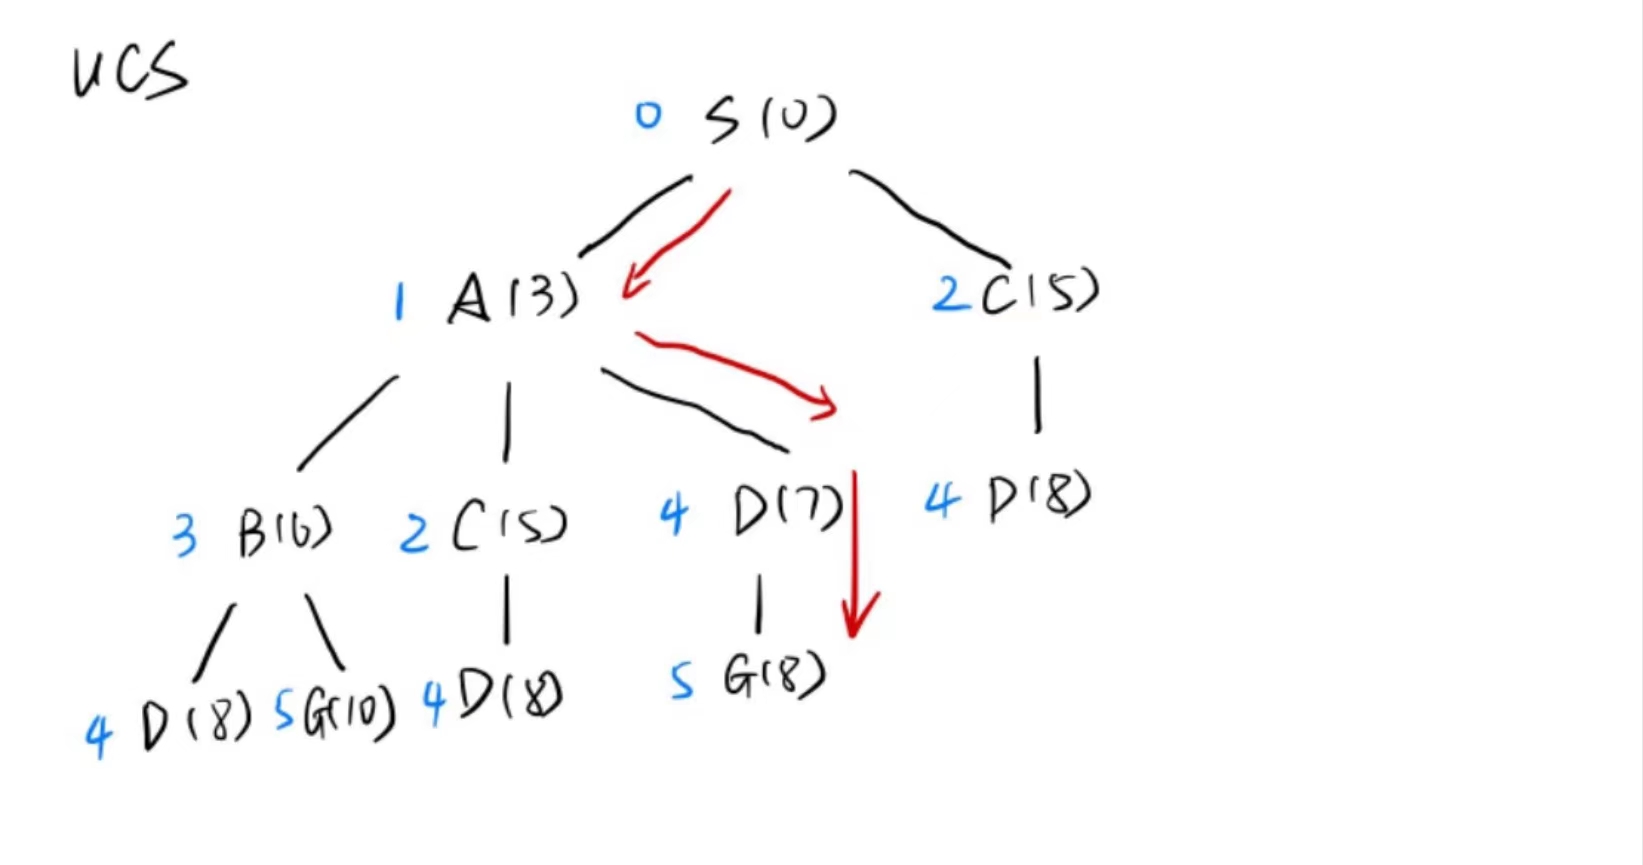 UCS
0 S(0)
1 A(3) 2 C(5)
3 B(6) 2 C(5) 4 D(7) 4 D(8)
4 D(8) 5 G(10) 4 D(8) 5 G(8)